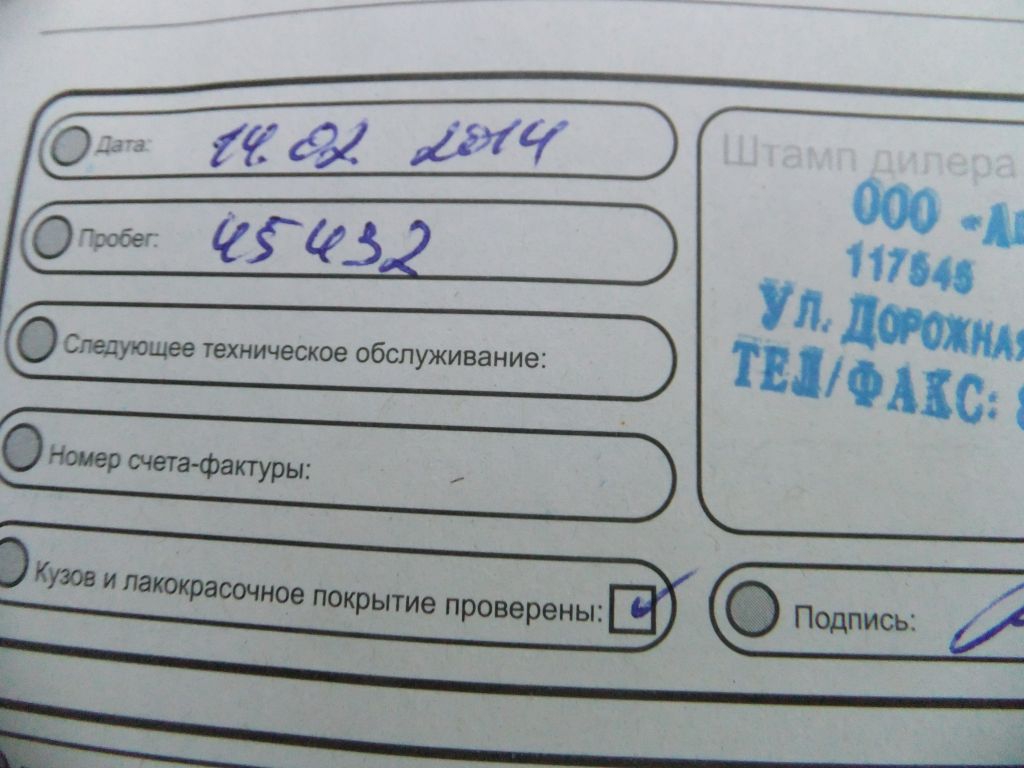 Дата: 14.02.2014
Пробег: 45432
Следующее техническое обслуживание:
Номер счета-фактуры:
Кузов и лакокрасочное покрытие проверены:
Штамп дилера
ООО
117545
УЛ. ДОРОЖНАЯ
ТЕЛ/ФАКС: 8
Подпись: